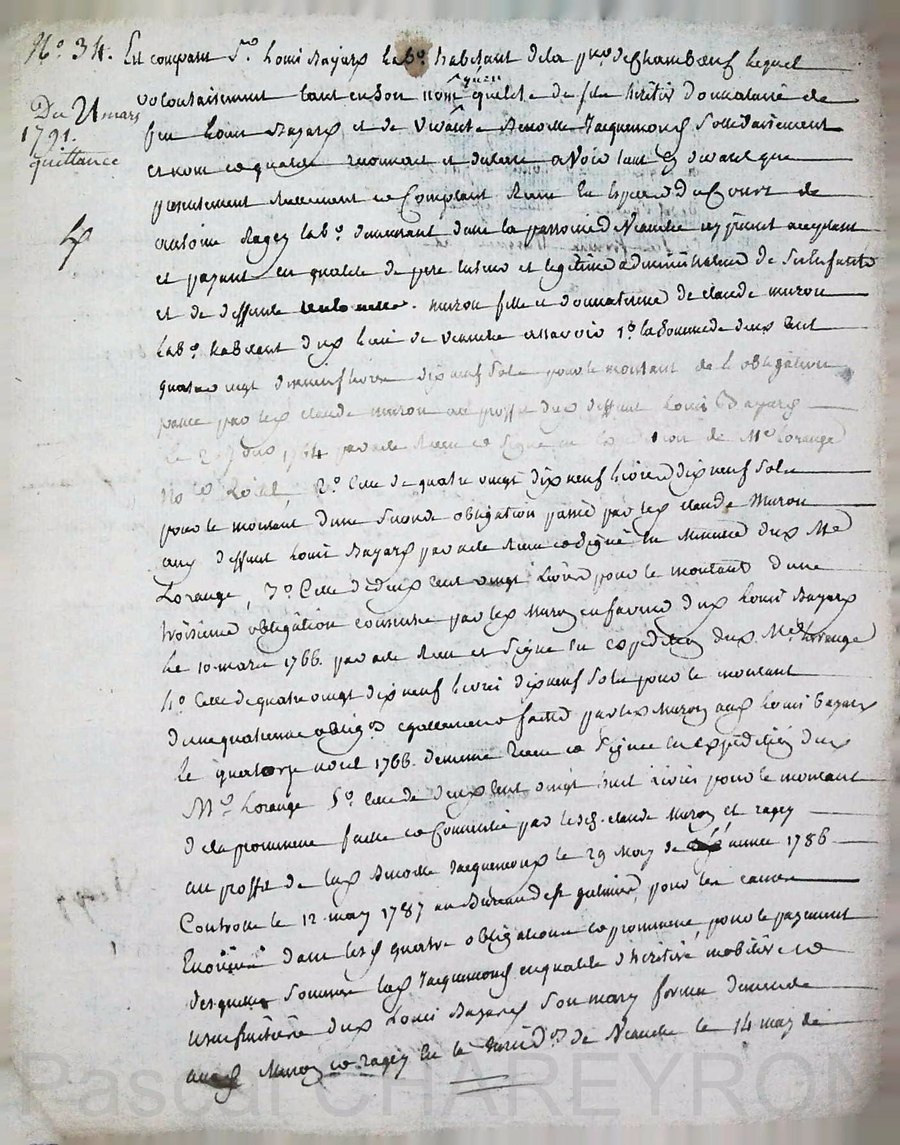 N.o 34.
Du 21 mars
1791.
quittance
Est comparu S.r Louis Bayard lab.r habitant de la p.sse de Chambœuf lequel
volontairement tant en son nom qualité de fils héritier donnataire de
feu Louis Bayard et de vivante Benoitte Jacquemond solidairement
et nom ce qualité reconnoit et declare avoir tant cy devant que
presentement reellement et comptant reçu en especes du cours de
Ragey lab.r demeurant dans la parroisse de Veauche icy present acceptant
et payant en qualité de pere tuteur et legitime administrateur de
et de deffunte muron fille et donnatrice de claude muron
lab.r habitant dud. lieu de Veauche assavoir 1.o la somme de deux cent
quatre vingt dix neuf livres dix neuf sols pour le montant de l'obligation
passée par led. claude muron au proffit dud. deffunt Louis Bayard
le 1764 par acte reçu et signé de M.e Lorange
2.o celle de quatre vingt dix neuf livres dix neuf sols
pour le montant d'une seconde obligation passée par led. claude Muron
aud. deffunt Louis Bayard par acte reçu et signé en minutte dud. M.e
Lorange, 3.o celle de deux cent vingt livres pour le montant d'une
troisieme obligation consentie par led. Muron en faveur dud. Louis Bayard
le 10 mars 1766. par acte reçu et signé en expedition dud. M.e Lorange
4.o celle de quatre vingt dix neuf livres dix neuf sols pour le montant
d'une quatrieme oblig.on egallement faitte par led. Muron aud. Louis Bayard
le quatorze avril 1766. de meme reçu et signé en expedition dud.
M.e Lorange 5.o celle de deux cent vingt huit livres pour le montant
de la promesse faitte et consentie par lesd. claude Muron et ragey
au proffit de lad. Benoitte Jacquemond le 29 May de année 1786
Controllé le 12 may 1787 au Bureau de st galmier, pour les causes
Enoncées dans lesd. quatre obligations et promesse pour le payement
desquelles sommes lad. Jacquemond en qualité d'heritiere mobiliere et
usufruitiere dud. Louis Bayard son mary forma demande
auxd. Muron et ragey en la de Veauche le 14 may de
Pascal CHAREYRON